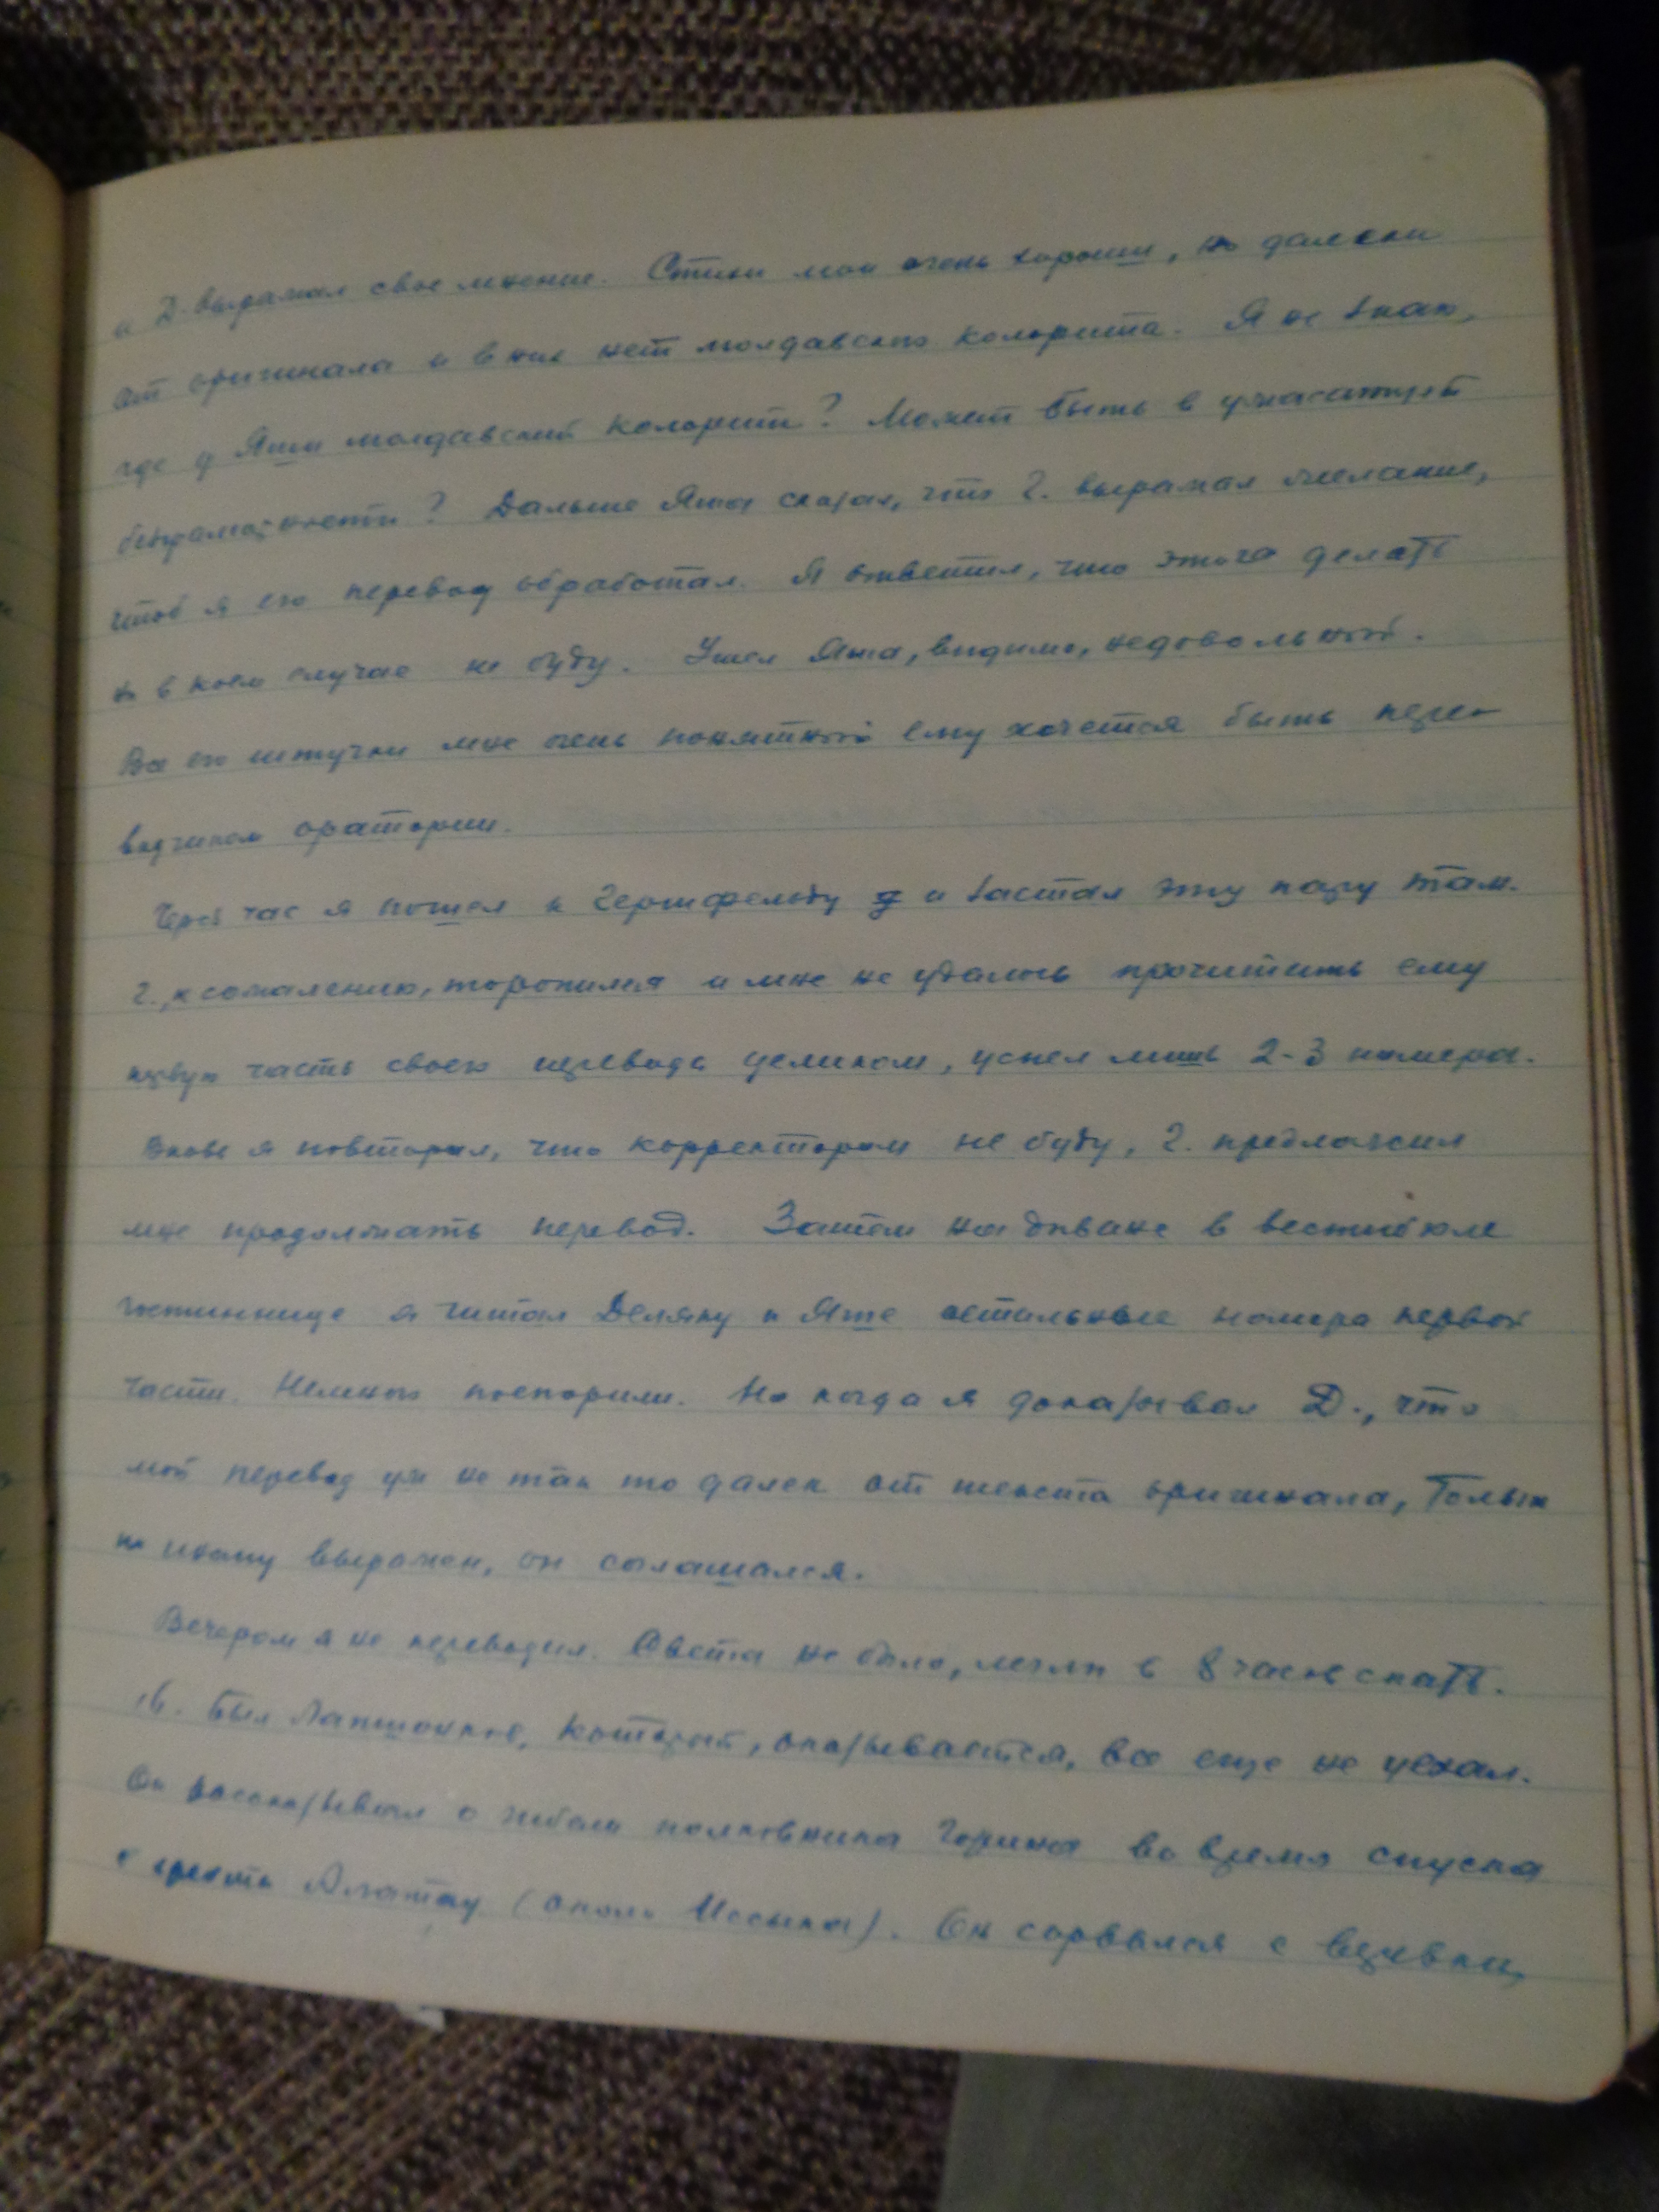 и Д. выражал свое мнение. Стихи мои очень хороши, но далеки
от оригинала и в них нет молдавского колорита. Я не знаю,
где у Яши молдавский колорит? Может быть в ужасающей
безграмотности? Дальше Яша сказал, что Г. выражал желание,
чтоб я его перевод обработал. Я ответил, что этого делать
ни в коем случае не буду. Ушел Яша, видимо, недовольный.
Все его штучки мне очень понятны: ему хочется быть перево
водчиком оратории.
Через час я пошел к Гершфельду и застал эту пару там.
Г., к сожалению, торопился и мне не удалось прочитать ему
первую часть своего перевода целиком, успел лишь 2-3 номера.
Вновь я повторил, что корректором не буду, Г. предложил
мне продолжать перевод. Затем на диване в вестибюле
гостиннице я читал Деляну и Яше остальные номера первой
части. Немного поспорили. Но когда я доказывал Д., что
мой перевод уж не так то далек от текста оригинала, только
по иному выражен, он соглашался.
Вечером я не переводил. Света не было, легли в 8 часов спать.
16. Был Лапшонков, который, оказывается, все еще не уехал.
Он рассказывал о гибели полковника Горина во время спуска
с хребта Алатау (около Иссыка). Он сорвался с веревки,